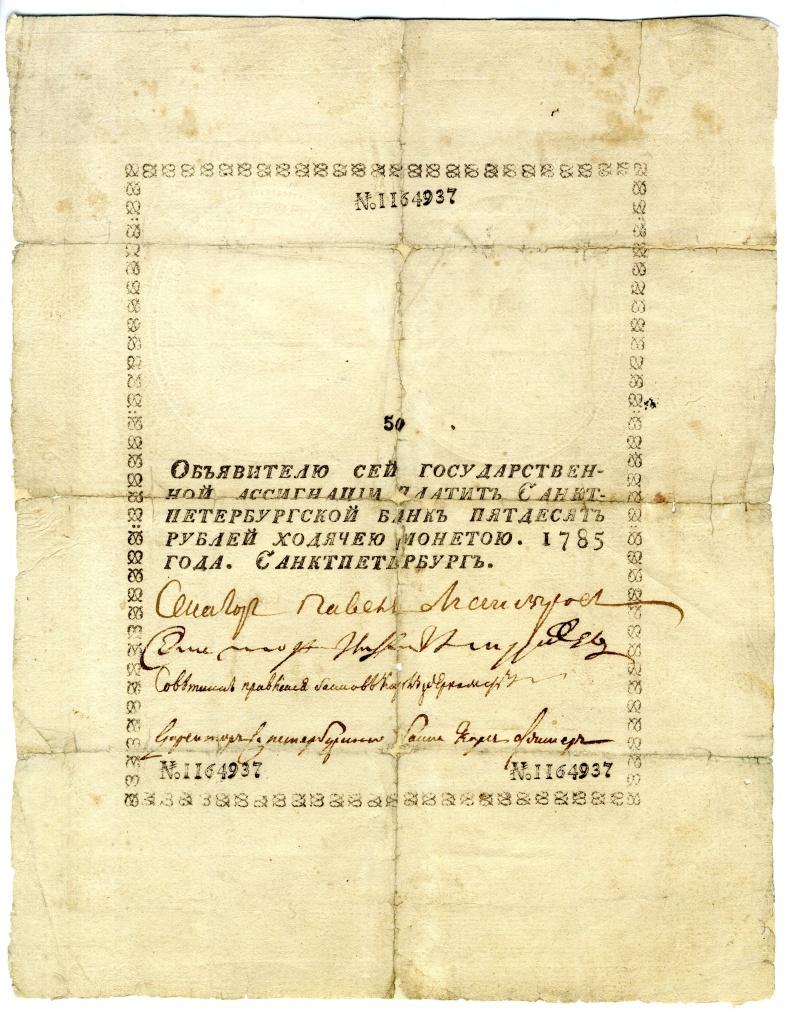 №1164937
50
Объявителю сей государствен-
ной ассигнаціи платитъ Санкт-
петербургской банкъ пятдесятъ
рублей ходячею монетою. 1785
года. Санктпетербургъ.
Сенаторъ Павелъ
Совѣтникъ правленія банковъ
Директоръ банка Карлъ
№1164937 №1164937